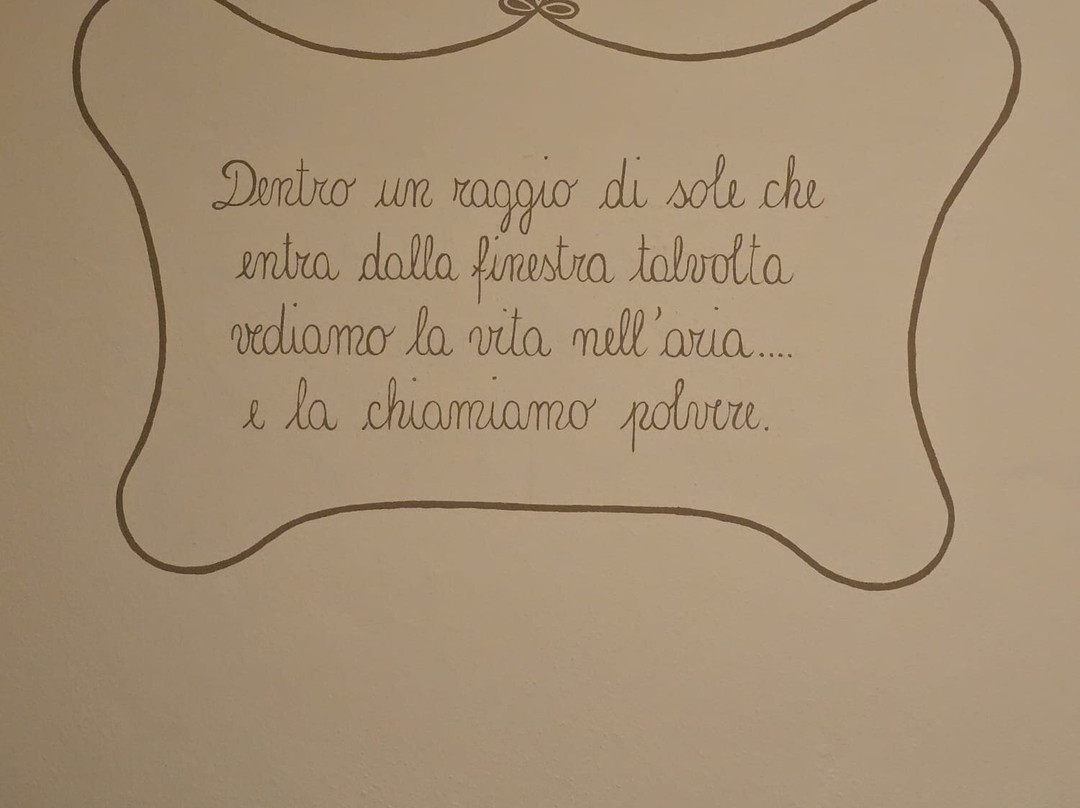 Dentro un raggio di sole che
entra dalla finestra talvolta
vediamo la vita nell'aria....
e la chiamiamo polvere.